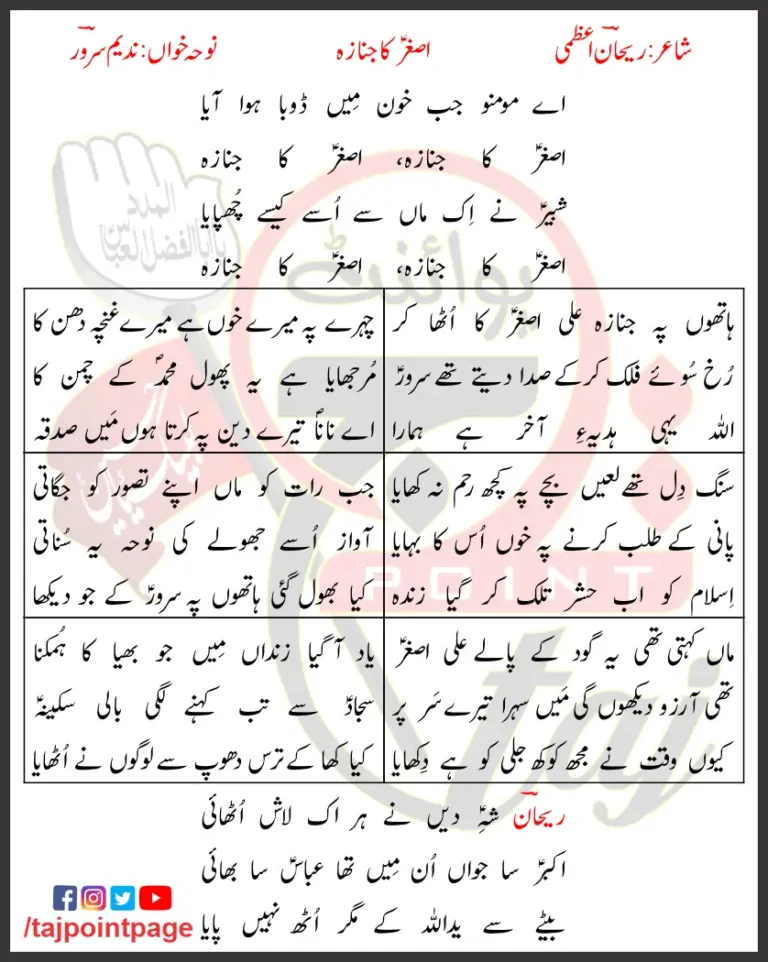 شاعر: ریحان اعظمی
اصغرؑ کا جنازہ
نوحہ خواں: ندیم سرور
اے مومنو جب خون مِیں ڈوبا ہوا آیا
اصغرؑ کا جنازہ، اصغرؑ کا جنازہ
شبیرؑ نے اِک ماں سے اُسے کیسے چُھپایا
اصغرؑ کا جنازہ، اصغرؑ کا جنازہ
ہاتھوں پہ جنازہ علی اصغرؑ کا اُٹھا کر
رُخ سُوئے فلک کر کے صدا دیتے تھے سرورؑ
اللہ یہی ہدیہءِ آخر ہے ہمارا
چہرے پہ میرے خوں ہے میرے غنچہ دھن کا
مُرجھایا ہے یہ پھول محمدؐ کے چمن کا
اے ناناؐ تیرے دین پہ کرتا ہوں مَیں صدقہ
سنگ دِل تھے لعیں بچے پہ کچھ رحم نہ کھایا
پانی کے طلب کرنے پہ خوں اُس کا بہایا
اِسلام کو اب حشر تلک کر گیا زندہ
جب رات کو ماں اپنے تصور کو جگاتی
آواز اُسے جھولے کی نوحہ یہ سُناتی
کیا بھول گئی ہاتھوں پہ سرورؑ کے جو دیکھا
ماں کہتی تھی یہ گود کے پالے علی اصغرؑ
تھی آرزو دیکھوں گی مَیں سہرا تیرے سَر پر
کیوں وقت نے مجھ کوکھ جلی کو ہے دِکھایا
یاد آ گیا زنداں مِیں جو بھیا کا ہُمکنا
سجادؑ سے تب کہنے لگی بالی سکینہؑ
کیا کھا کے ترس دھوپ سے لوگوں نے اُٹھایا
ریحان شہِؑ دیں نے ہر اک لاش اُٹھائی
اکبرؑ سا جواں اُن مِیں تھا عباسؑ سا بھائی
بیٹے سے یداللہ کے مگر اُٹھ نہیں پایا
/tajpointpage
المدد
یا ابالفضل العباسؑ
پوائنٹ
POINT
taj